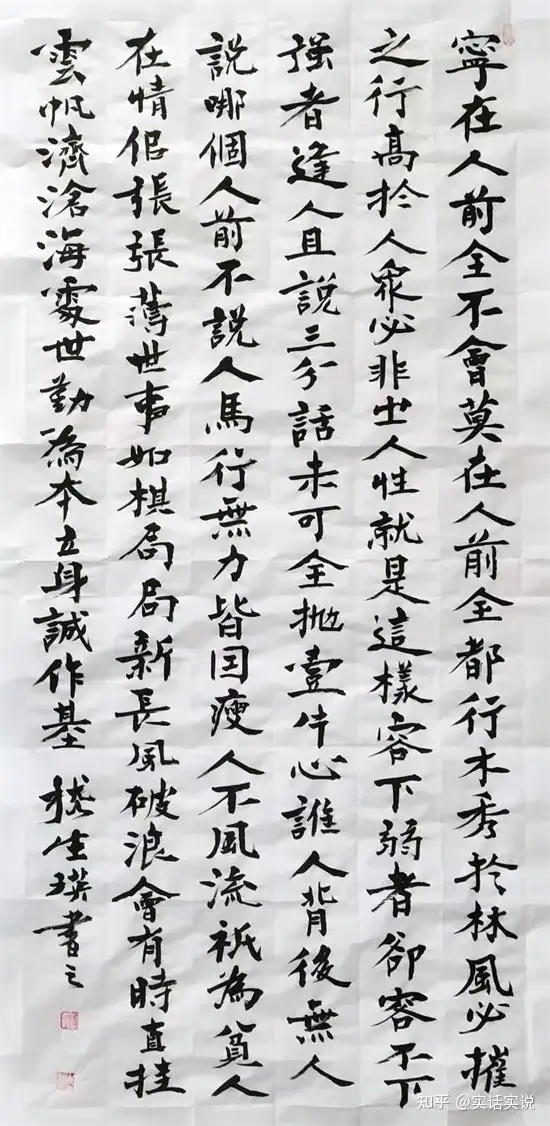 寧在人前全不會莫在人前全都行木秀於林風必摧
之行高於人衆必非㞢人性就是這樣容下弱者卻容不下
强者逢人且說三分話未可全抛壹片心誰人背後無人
說哪個人前不說人馬行無力皆因瘦人不風流祇為貧人
在情佀張張薄世事如棋局局新長風破浪會有時直挂
雲帆濟滄海處世勤為本立身誠作基 生瑛書之
知乎 @实话实说